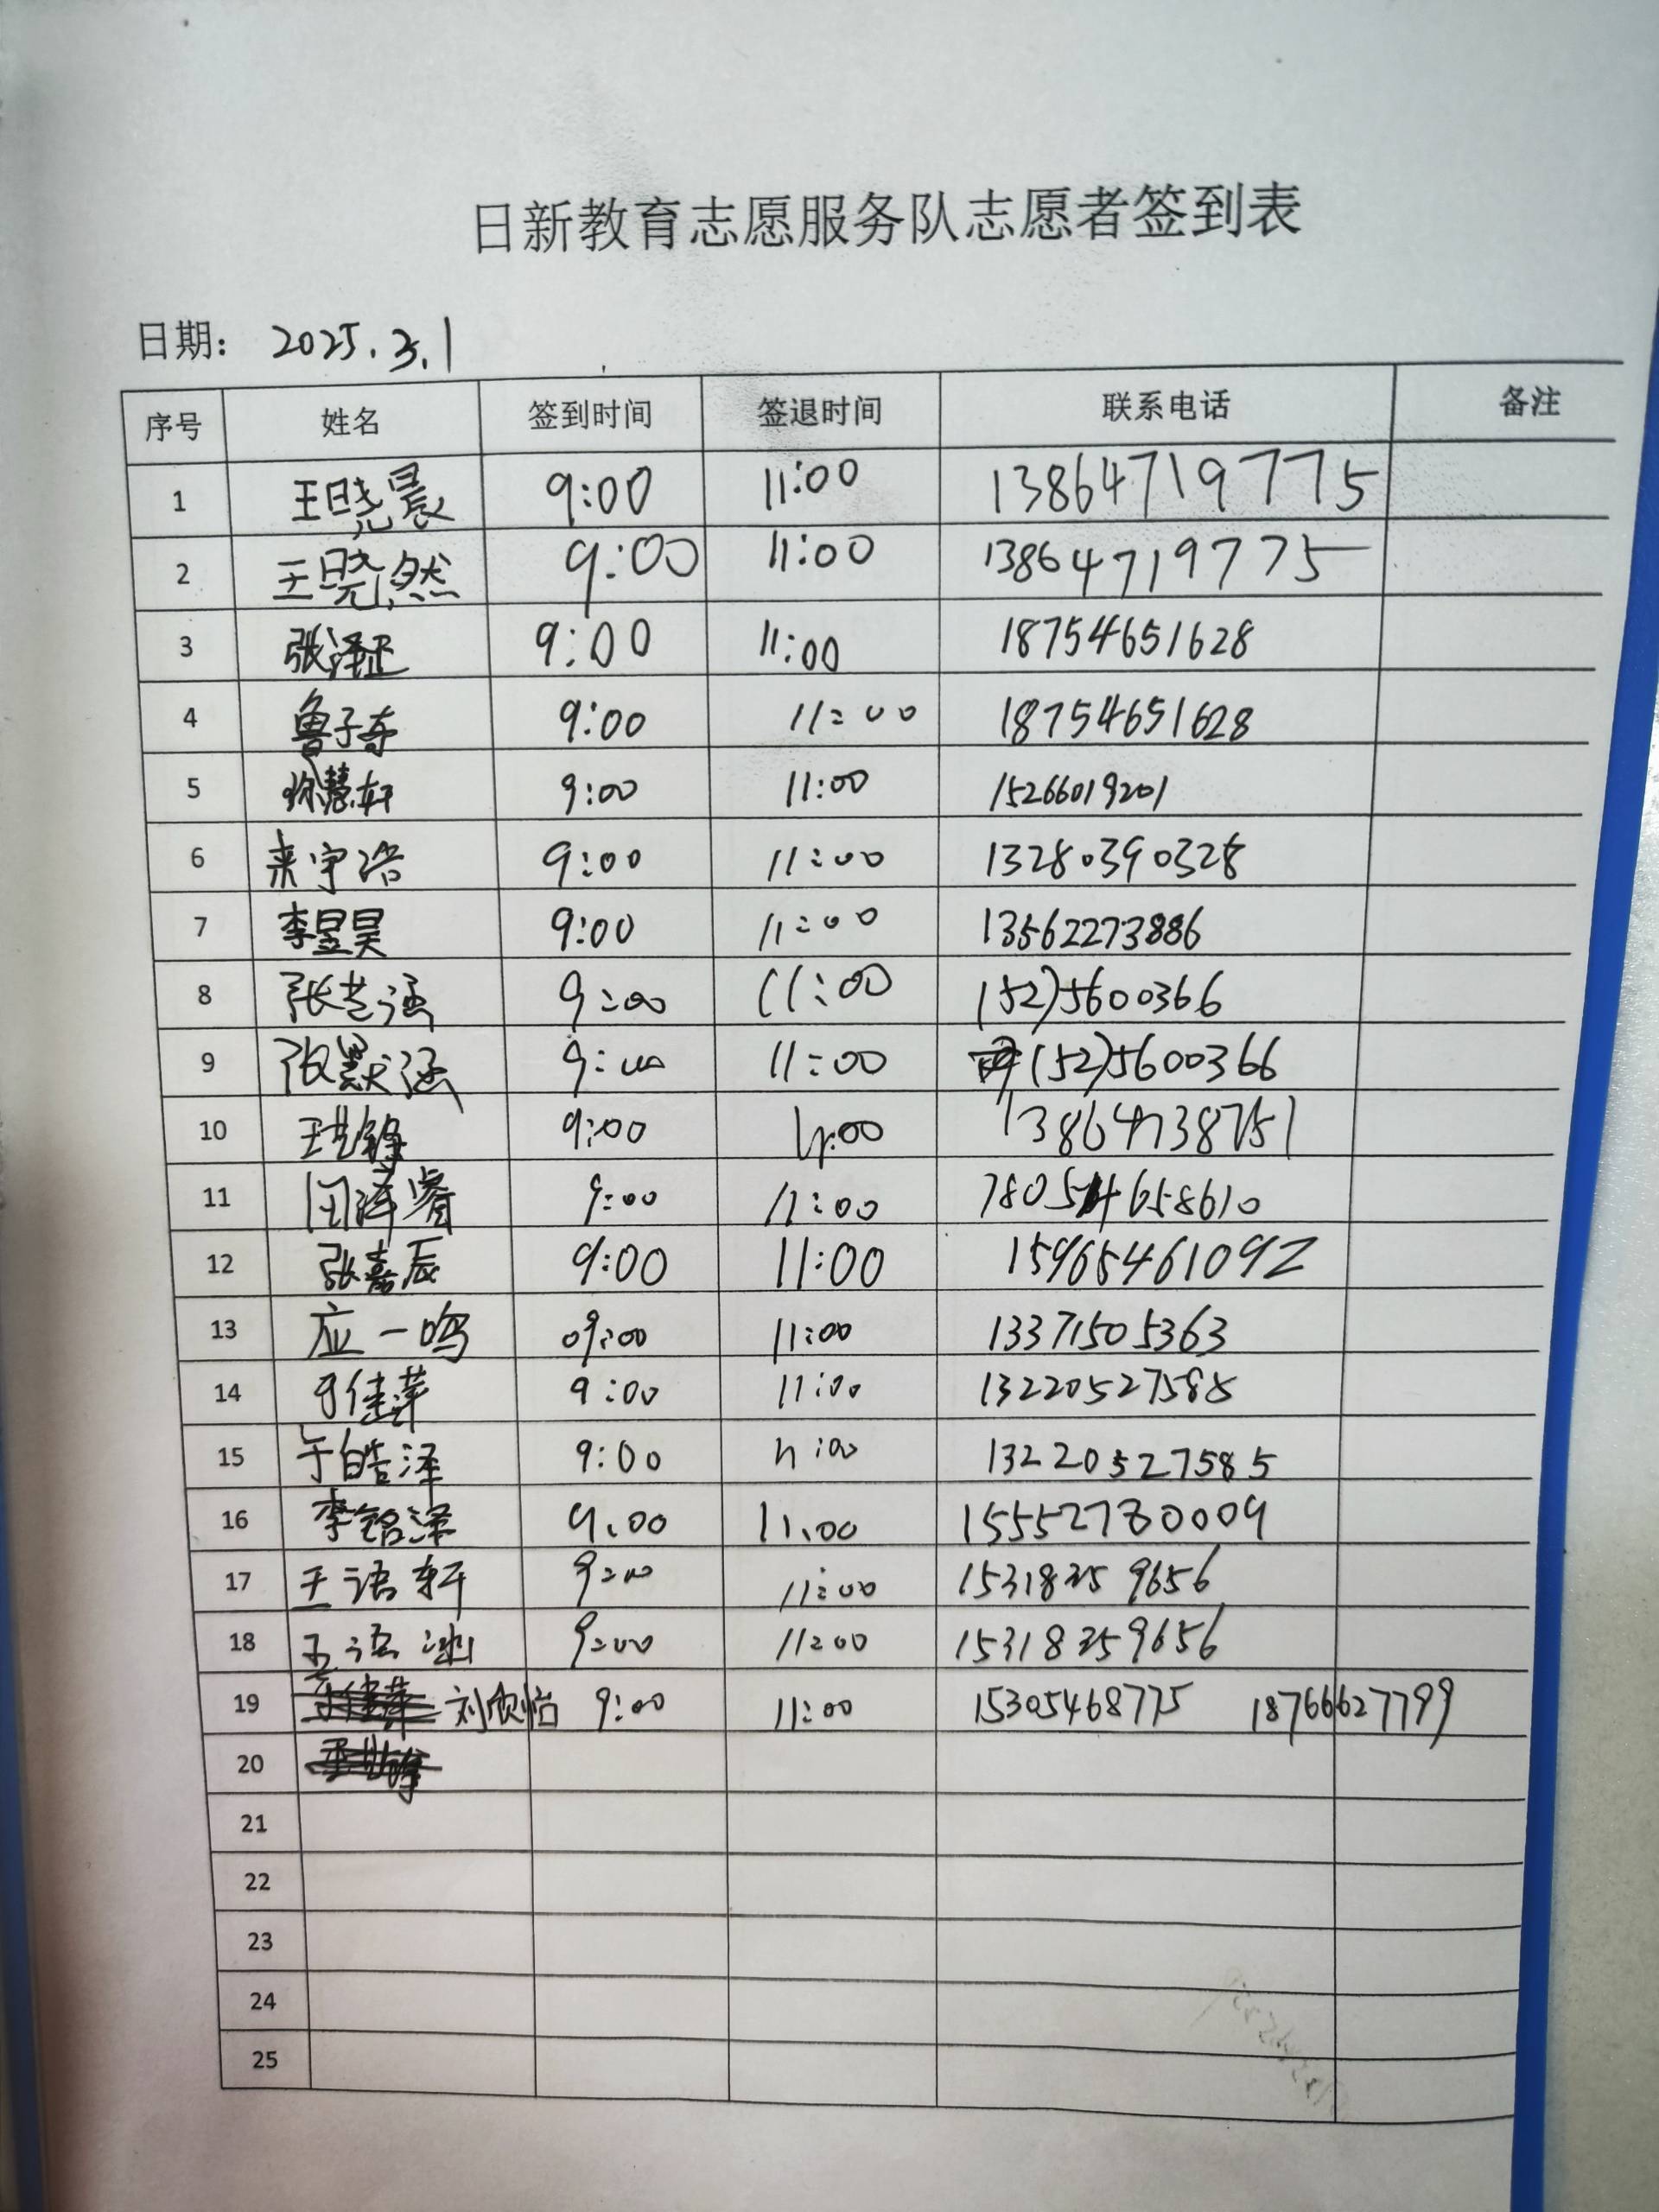 日新教育志愿服务队志愿者签到表
日期： 2025.3.1
序号 姓名 签到时间 签退时间 联系电话 备注
1 王晓晨 9:00 11:00 13864719775
2 王晓然 9:00 11:00 13864719775
3 张泽正 9:00 11:00 18754651628
4 鲁子奇 9:00 11:00 18754651628
5 徐慧轩 9:00 11:00 15266019201
6 来宇浩 9:00 11:00 13280390328
7 李昱昊 9:00 11:00 13562273886
8 张芝涵 9:00 11:00 15275600366
9 张默涵 9:00 11:00 15275600366
10 9:00 11:00 13864738751
11 闫泽睿 9:00 11:00 18054658610
12 张嘉辰 9:00 11:00 15965461092
13 应一鸣 09:00 11:00 13371505363
14 于佳萍 9:00 11:00 13220527585
15 于皓泽 9:00 11:00 13220527585
16 李铭泽 9:00 11:00 15552730009
17 王语轩 9:00 11:00 15318359656
18 王语 9:00 11:00 15318359656
19 刘欣怡 9:00 11:00 15305468775 18766627799
20
21
22
23
24
25